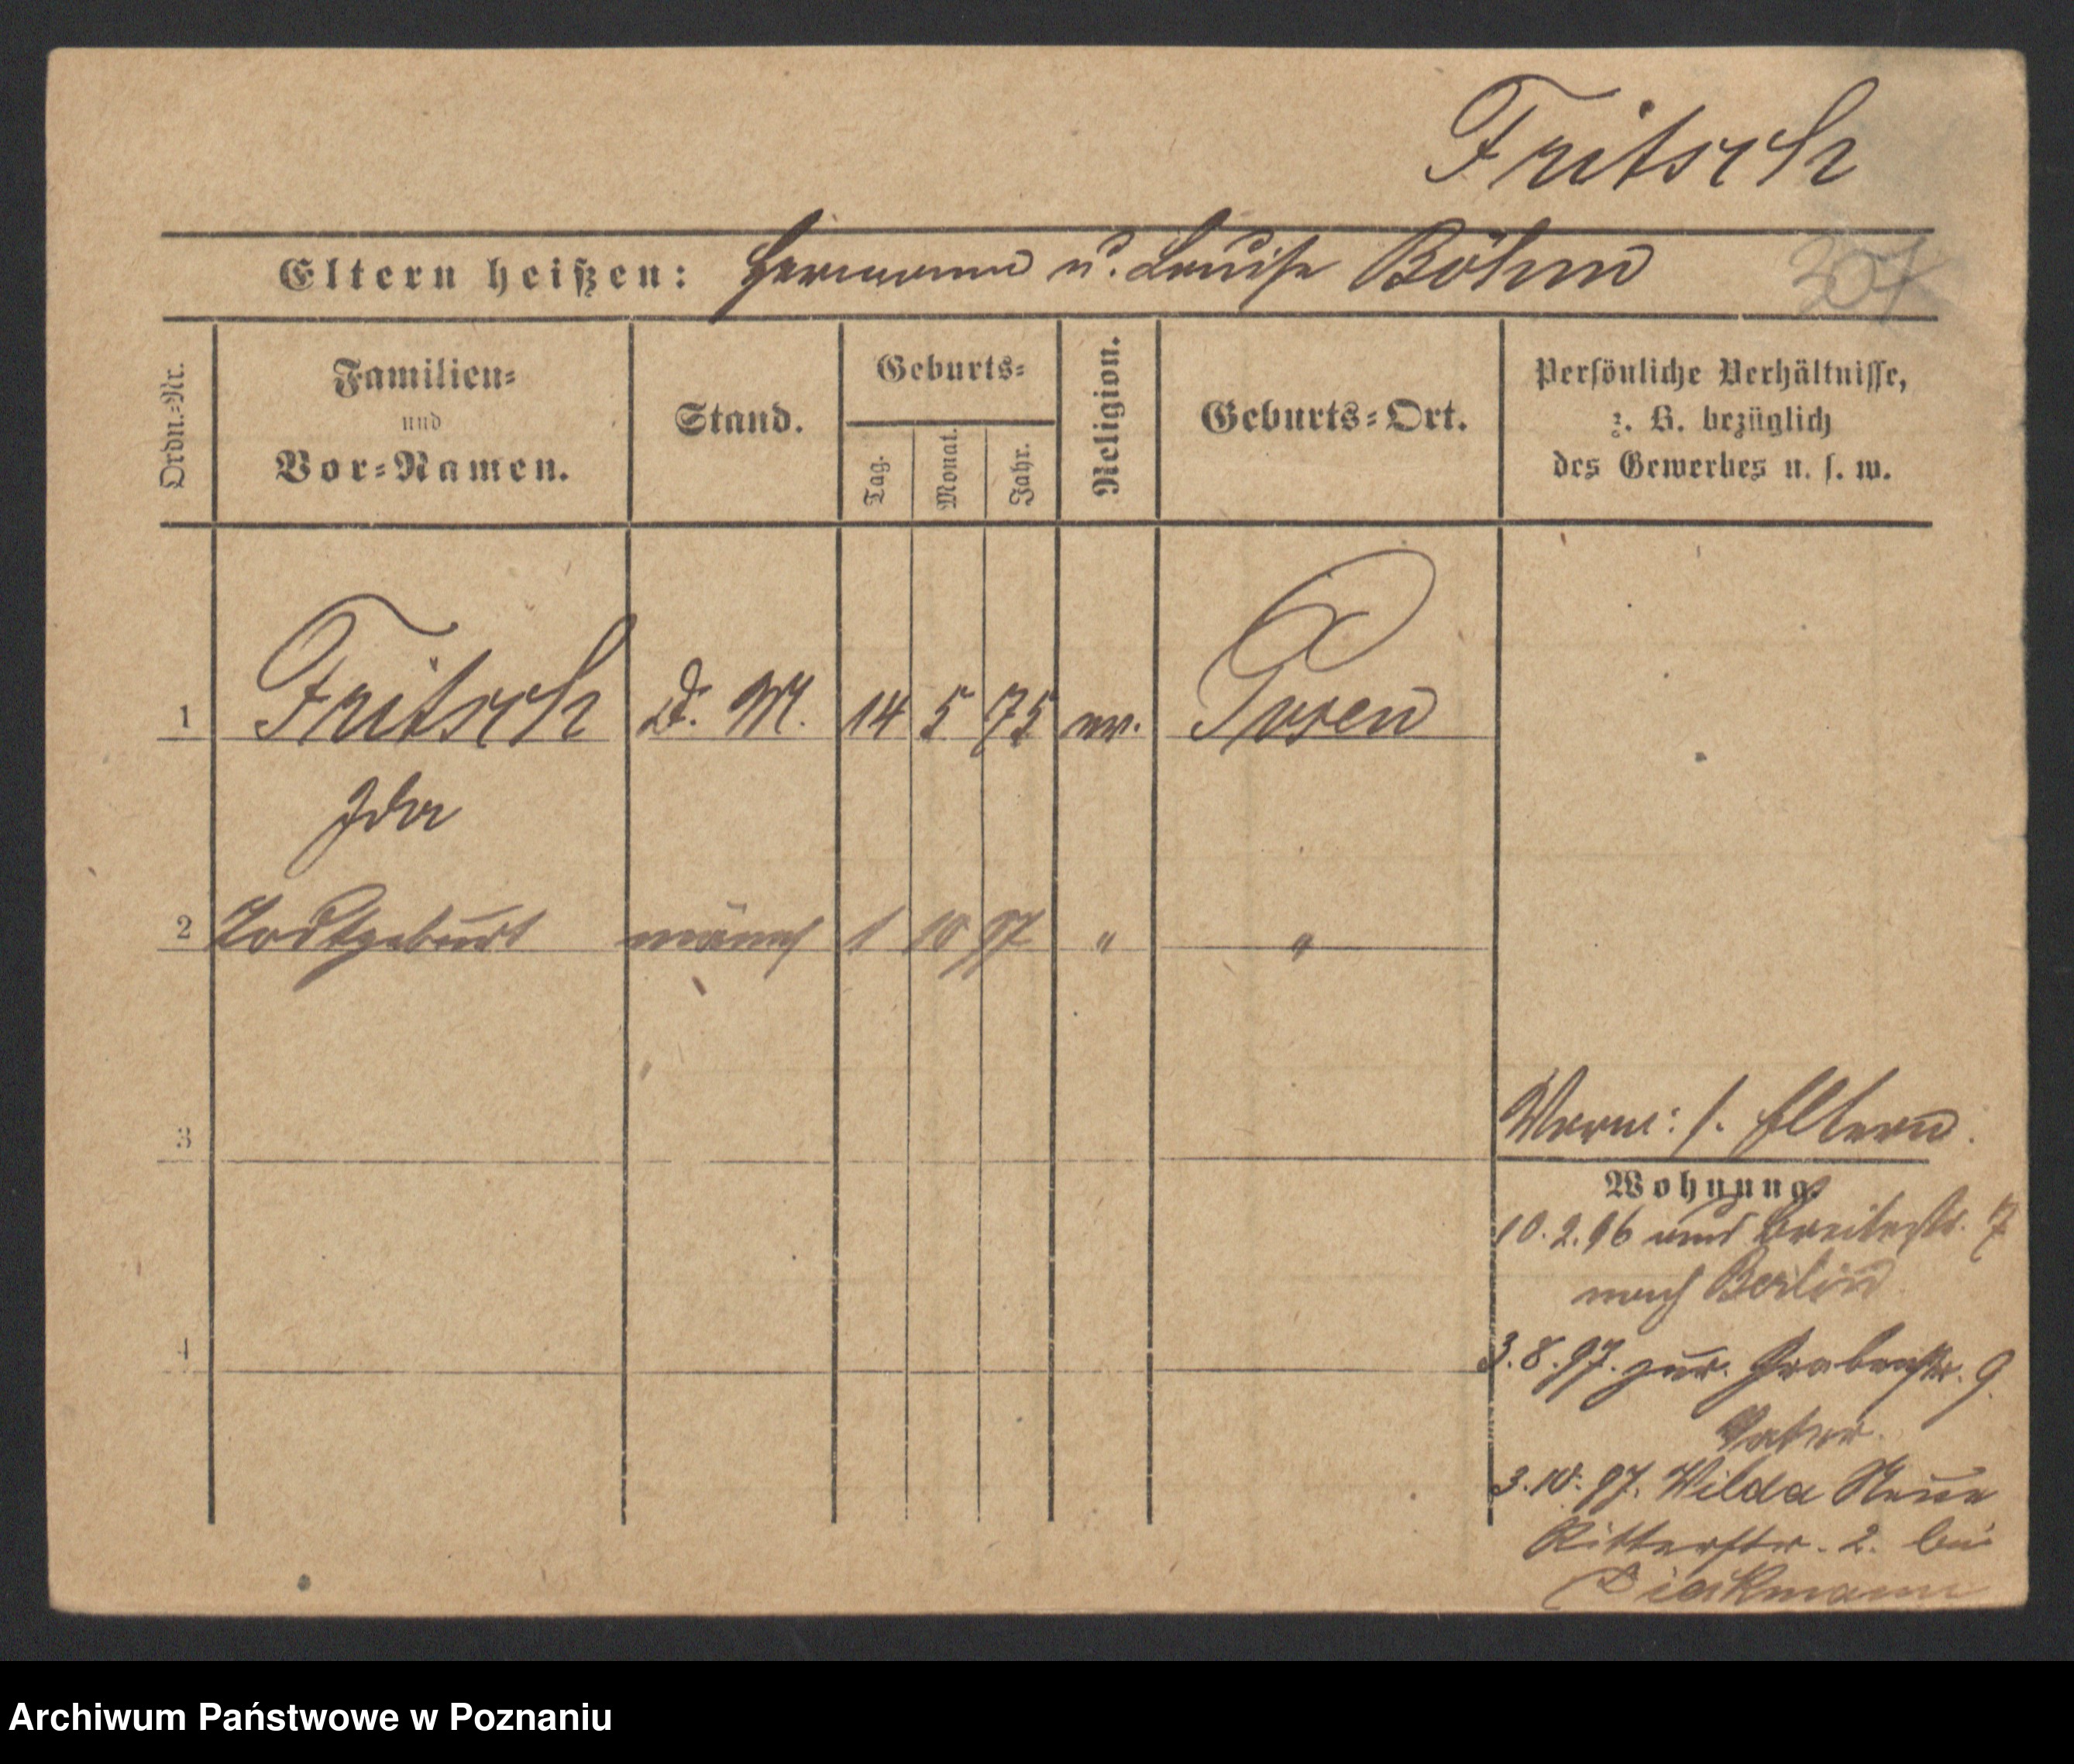 Fritsch
Eltern heißen: Hermann u. Louise Böhm
307
Ordn.=Nr.
Familien=
und
Vor=Namen.
Stand.
Geburts=
Tag.
Monat.
Jahr.
Religion.
Geburts=Ort.
Persönliche Verhältnisse,
z. B. bezüglich
des Gewerbes u. s. w.
1 Fritsch D. M. 14 5 75 ev. Posen
Ida
2 Todtgeburt männl 1 10 97 " "
3
4
Verm: s. Eltern.
Wohnung.
10.2.96 und Breitestr. 7
nach Berlin
3.8.97. zur. Grabenstr. 9.
Vater.
3.10.97. Wilda Neue
Ritterstr. 2. bei
Dieckmann
Archiwum Państwowe w Poznaniu